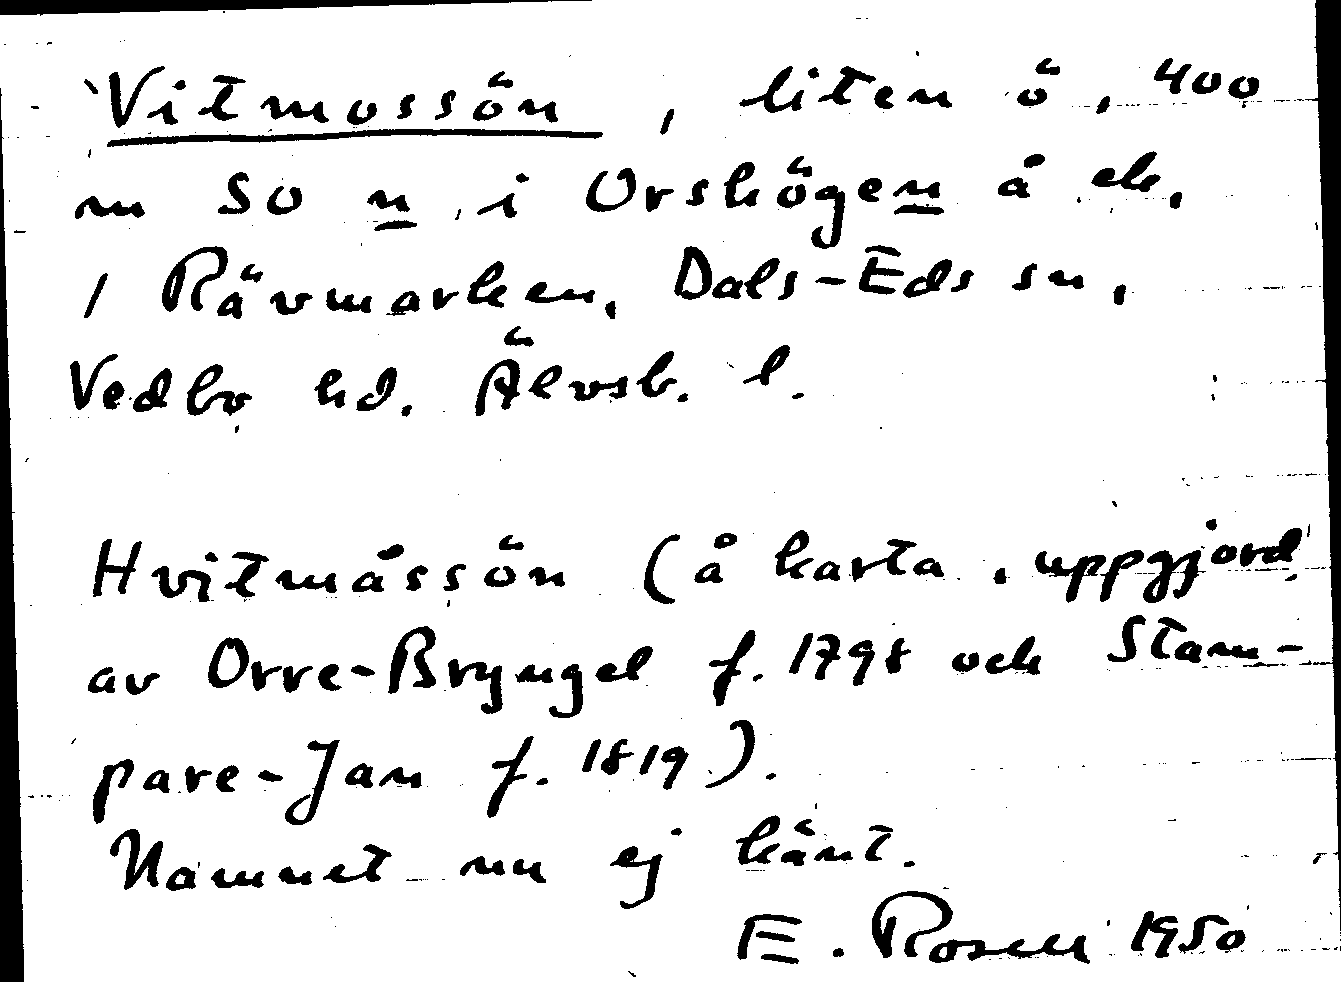 Vitmossön, liten ö, 400
m SO n i Orshögen å ek.
/ Rävmarken, Dals-Eds sn,
Vedbo hd. Älvsb. l.
Hvitmåssön (å karta, uppgjord
av Orre-Bryngel f. 1798 och Stam-
pare-Jan f. 1819).
Namnet nu ej känt.
E. Rosen 1950